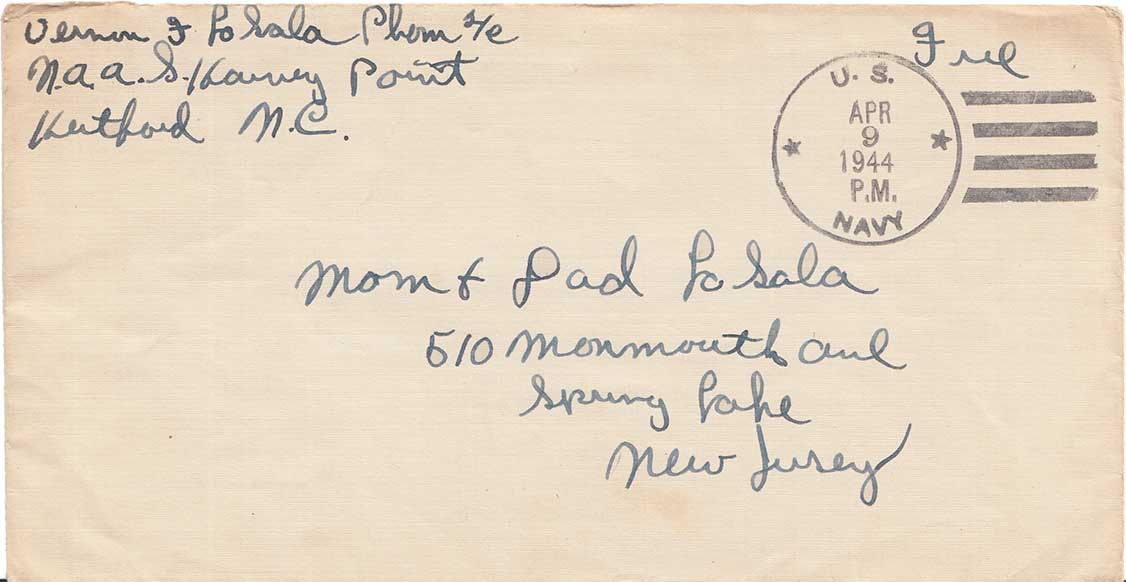 Vernon F LaSala Phom 2/c
N.A.A.S. Harvey Point
Hertford N.C.
Free
U. S.
APR
9
1944
P.M.
NAVY
Mom & Dad LaSala
510 Monmouth Ave
Spring Lake
New Jersey